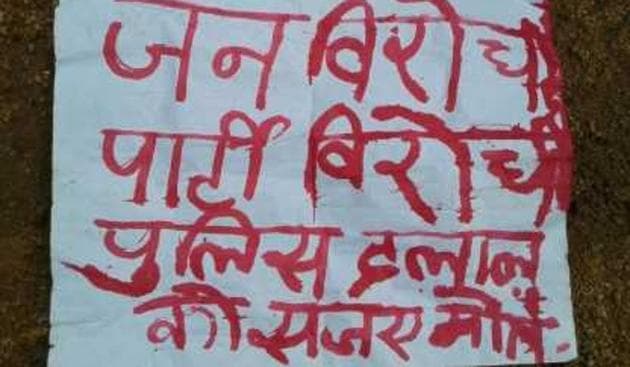 जन विरोधी
पार्टी विरोधी
पुलिस दलाल
को सजाए मौत